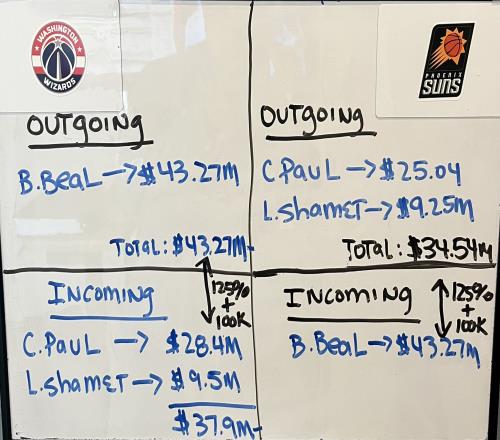 WASHINGTON
WIZARDS
OUTGOING
B.BEAL → $43.27M
TOTAL: $43.27M
PHOENIX
SUNS
OUTGOING
C.PAUL → $25.04
L.SHAMET → $9.25M
TOTAL: $34.54M
INCOMING
125%
+
100K
C.PAUL → $28.4M
L.SHAMET → $9.5M
$37.9M
INCOMING
125%
+
100K
B.BEAL → $43.27M